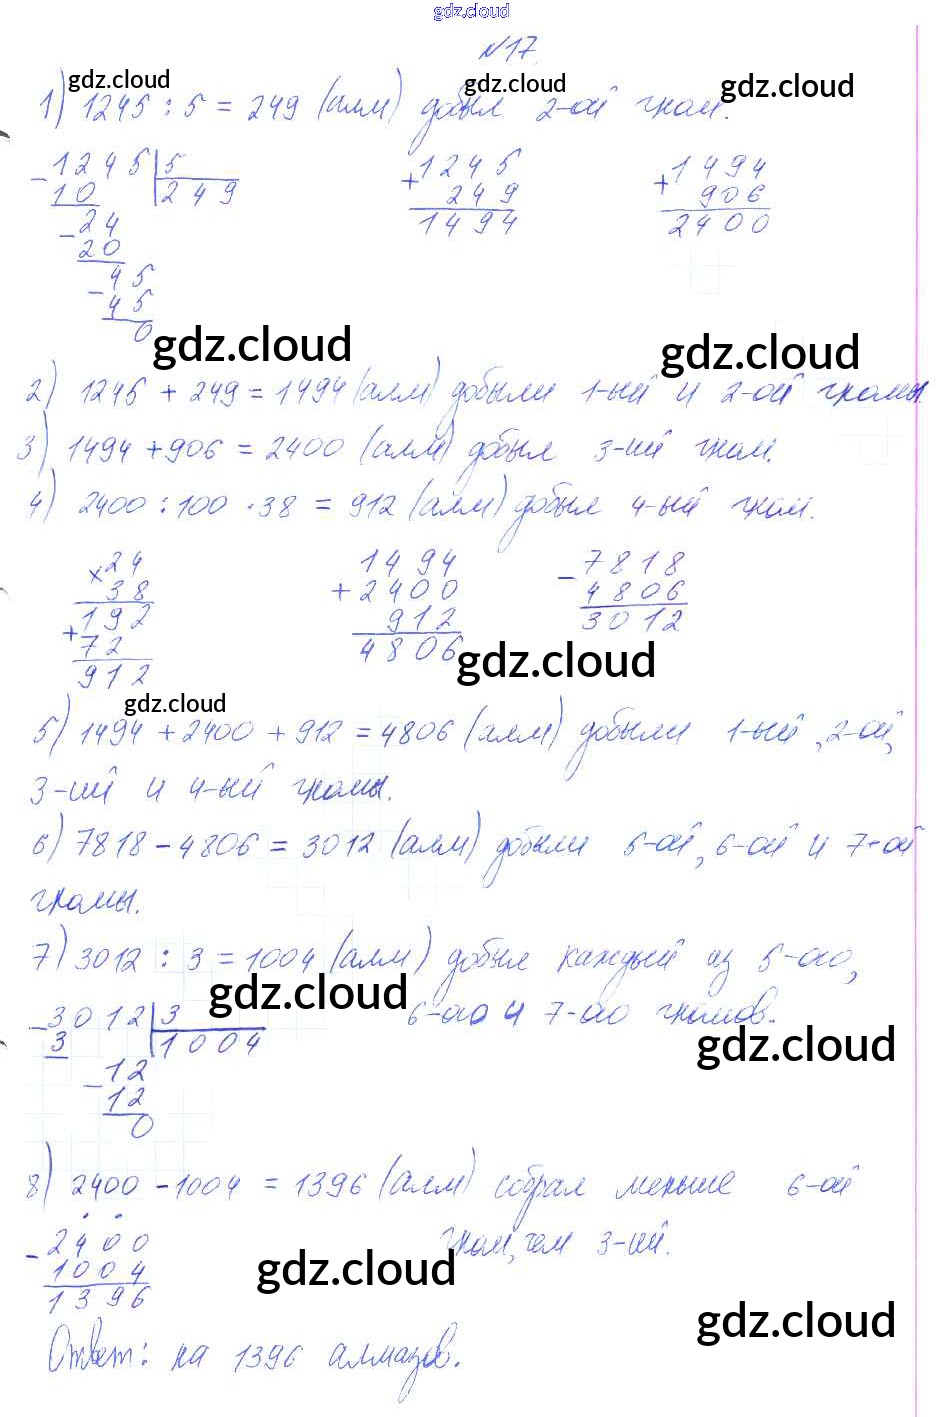 gdz.cloud
N17.
gdz.cloud gdz.cloud gdz.cloud
1) 1245 : 5 = 249 (алм) добыл 2-ой гном.
- 1245 | 5 + 1245 + 1494
10 249 249 906
- 24 1494 2400
20
- 45
45
0
gdz.cloud gdz.cloud
2) 1245 + 249 = 1494 (алм) добыли 1-ый и 2-ой гномы.
3) 1494 + 906 = 2400 (алм) добыл 3-ий гном.
4) 2400 : 100 · 38 = 912 (алм) добыл 4-ый гном.
x 24 1494 - 7818
38 + 2400 4806
192 912 3012
+ 72 4806
912
gdz.cloud
gdz.cloud
5) 1494 + 2400 + 912 = 4806 (алм) добыли 1-ый, 2-ой,
3-ий и 4-ый гномы.
6) 7818 - 4806 = 3012 (алм) добыли 5-ой, 6-ой и 7-ой
гномы.
7) 3012 : 3 = 1004 (алм) добыл каждый из 5-ого,
gdz.cloud
6-ого и 7-ого гномов.
- 3012 | 3
3 1004
- 12
12
0
gdz.cloud
8) 2400 - 1004 = 1396 (алм) собрал меньше 6-ой
гном, чем 3-ий.
- 2400
1004
1396
gdz.cloud
gdz.cloud
Ответ: на 1396 алмазов.